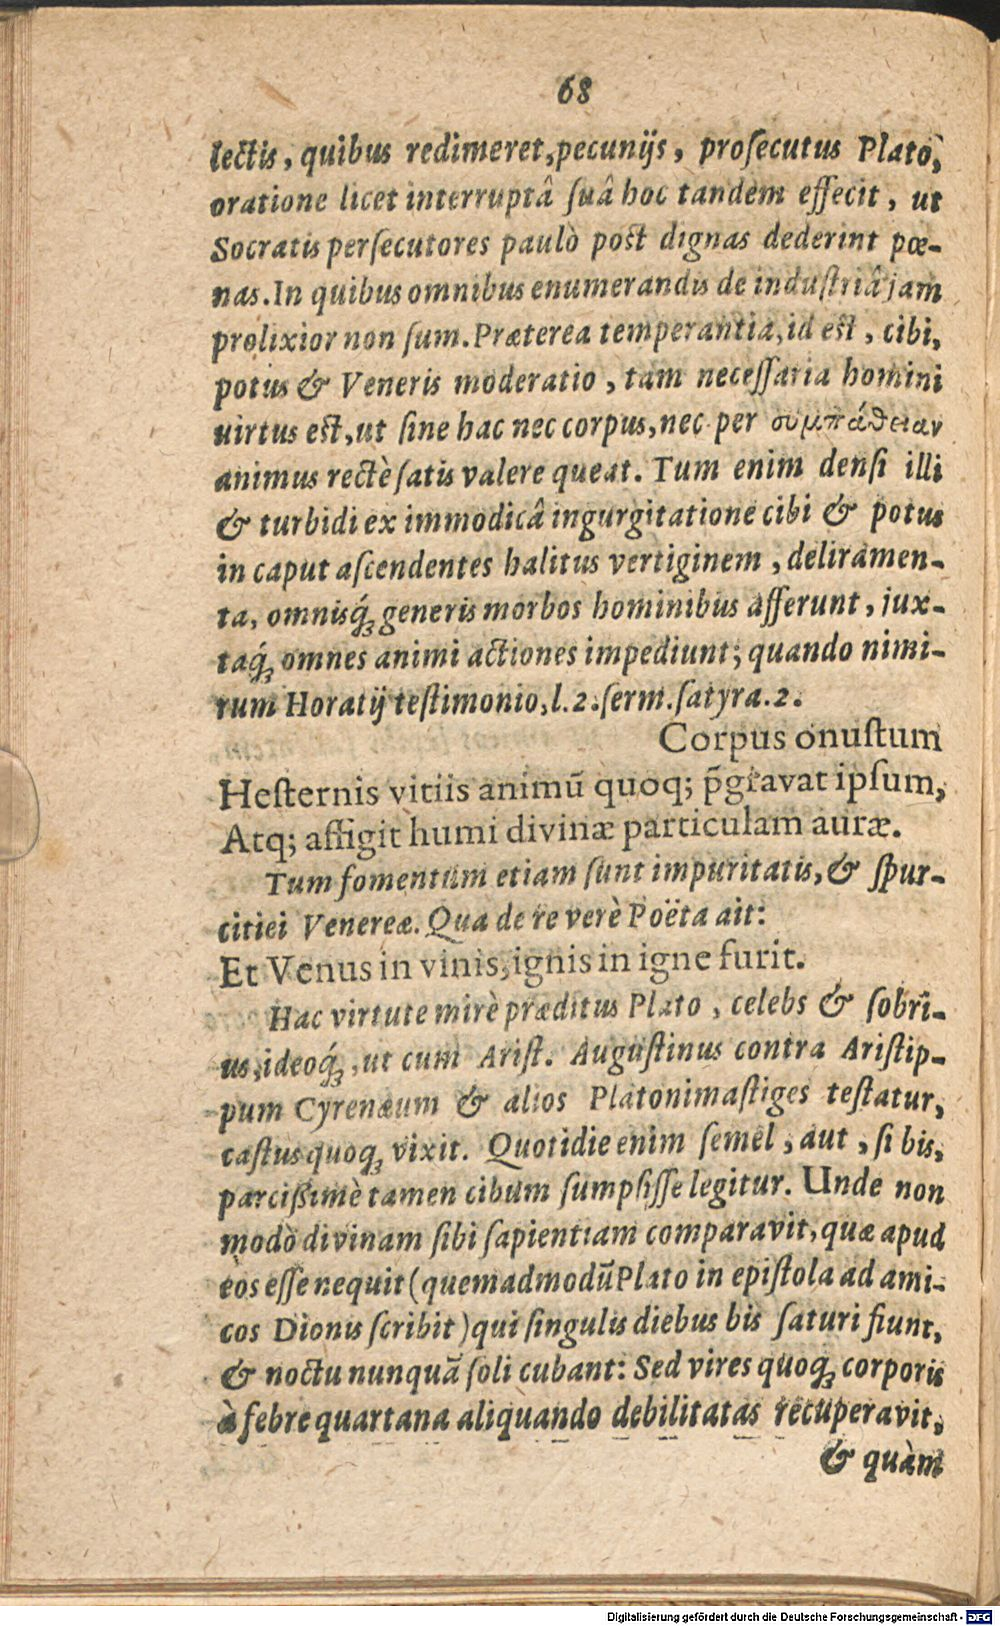 68
lectis, quibus redimeret, pecunijs, prosecutus Plato,
oratione licet interruptâ suâ hoc tandem effecit, ut
Socratis persecutores paulò post dignas dederint pœ-
nas. In quibus omnibus enumerandis de industriâ jam
prolixior non sum. Præterea temperantia, id est, cibi,
potus & Veneris moderatio, tam necessaria homini
virtus est, ut sine hac nec corpus, nec per συμπάθειαν
animus rectè satis valere queat. Tum enim densi illi
& turbidi ex immodicâ ingurgitatione cibi & potus
in caput ascendentes halitus vertiginem, deliramen-
ta, omnisq́ꝫ generis morbos hominibus afferunt, jux-
taq́ꝫ omnes animi actiones impediunt; quando nimi-
rum Horatij testimonio, l. 2. serm. satyra. 2.
Corpus onustum
Hesternis vitiis animū quoq; p̄gravat ipsum,
Atq; affigit humi divinæ particulam auræ.
Tum fomentum etiam sunt impuritatis, & spur-
citiei Venereæ. Qua de re verè Poëta ait:
Et Venus in vinis, ignis in igne furit.
Hac virtute mirè præditus Plato, celebs & sobri-
us, ideoq́ꝫ, ut cum Arist. Augustinus contra Aristip-
pum Cyrenæum & alios Platonimastiges testatur,
castus quoqꝫ vixit. Quotidie enim semel, aut, si bis,
parcißimè tamen cibum sumpsisse legitur. Unde non
modò divinam sibi sapientiam comparavit, quæ apud
eos esse nequit (quemadmodū Plato in epistola ad ami-
cos Dionis scribit) qui singulis diebus bis saturi fiunt,
& noctu nunquā soli cubant: Sed vires quoqꝫ corporis
à febre quartana aliquando debilitatas recuperavit,
& quàm
Digitalisierung gefördert durch die Deutsche Forschungsgemeinschaft - DFG